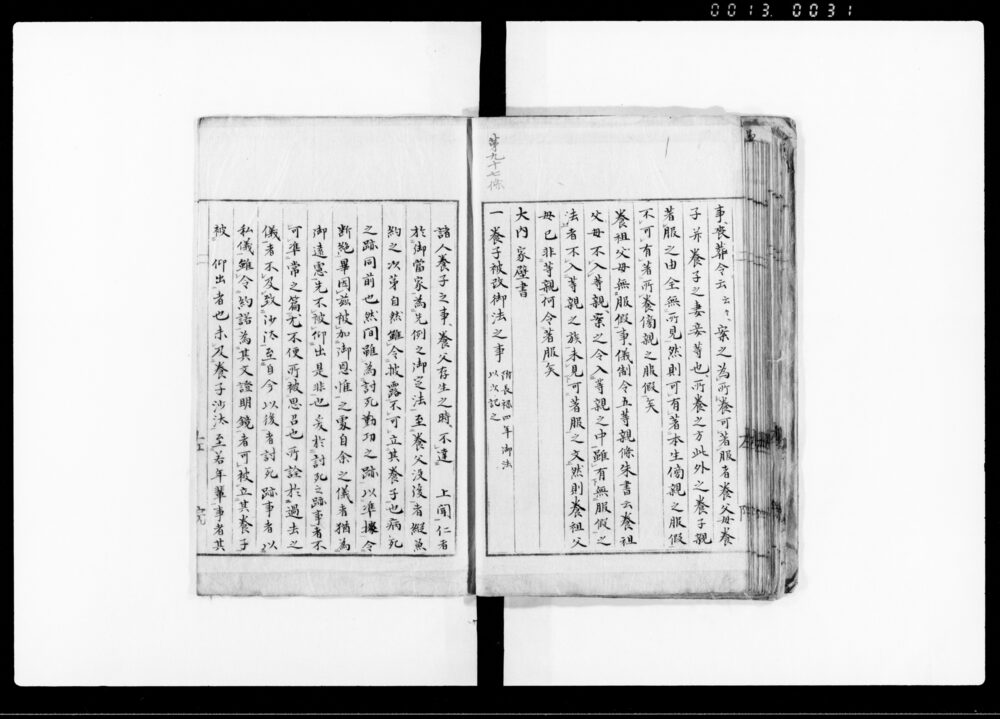 0013. 0031
第九十七條
事、喪葬令云云々、案之為所養可著服者養父母養
子并養子之妻妾等也、所養之方此外之養子親
著服之由全無所見然則可有著本生傍親之服假
不可有著所養傍親之服假矣
養祖父母無服假事、儀制令五等親條朱書云養祖
父母不入等親、案之令入等親之中雖有無服假之
法者不入等親之族未見可著服之文然則養祖父
母已非等親何令著服矣
大内家壁書
一養子被改御法之事 附長禄四年御法
以次記之
諸人養子之事、養父存生之時、不達 上聞仁者
於御當家為先例之御定法至養父没後者縦兼
約之次第自然雖令披露不可立其養子也病死
之跡同前也然間雖為討死勤功之跡以準據令
断絶畢因茲被加御恩惟之處自余之儀者猶為
御遠慮先不被仰出是非也爰於討死之跡事者不
可準常之篇尤不便所被思召也所詮於過去之
儀者不及致沙汰至自今以後者討死跡事者以
私儀雖令約諾為其文證明鏡者可被立其養子
被 仰出者也未及養子沙汰至若年輩事者其